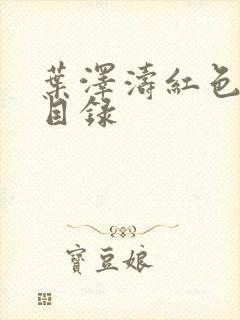 葉澤濤紅色
目錄
寶豆娘